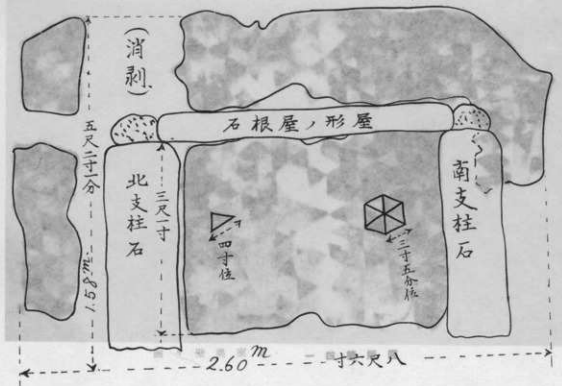 (消剥)
石根屋ノ形屋
五尺二寸一分
1.58m.
北支柱石
三尺一寸
四寸位
三寸五分位
南支柱石
2.60m
八尺六寸